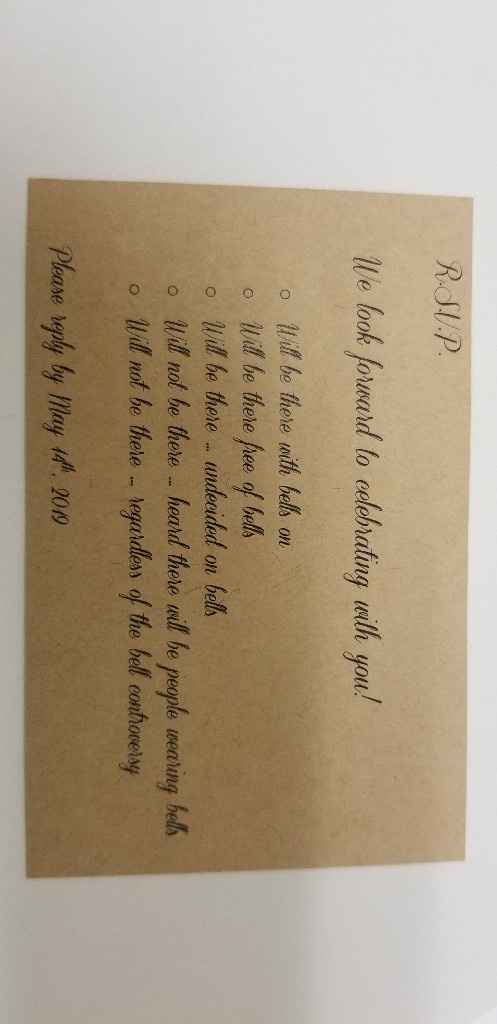 R.S.V.P.
We look forward to celebrating with you!
○ Will be there with bells on
○ Will be there free of bells
○ Will be there ... undecided on bells
○ Will not be there ... heard there will be people wearing bells
○ Will not be there ... regardless of the bell controversy
Please reply by May 14th, 2019